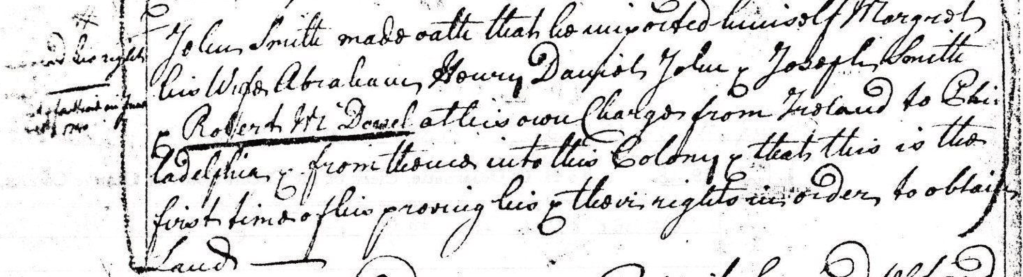 John Smith made oath that he imported himself Margret
his Wife Abraham Henry Daniel John & Joseph Smith
& Robert McDowel at his own Charges from Ireland to Phi
ladelphia & from thence into this Colony & that this is the
first time of his proving his & their rights in order to obtain
Land
rights